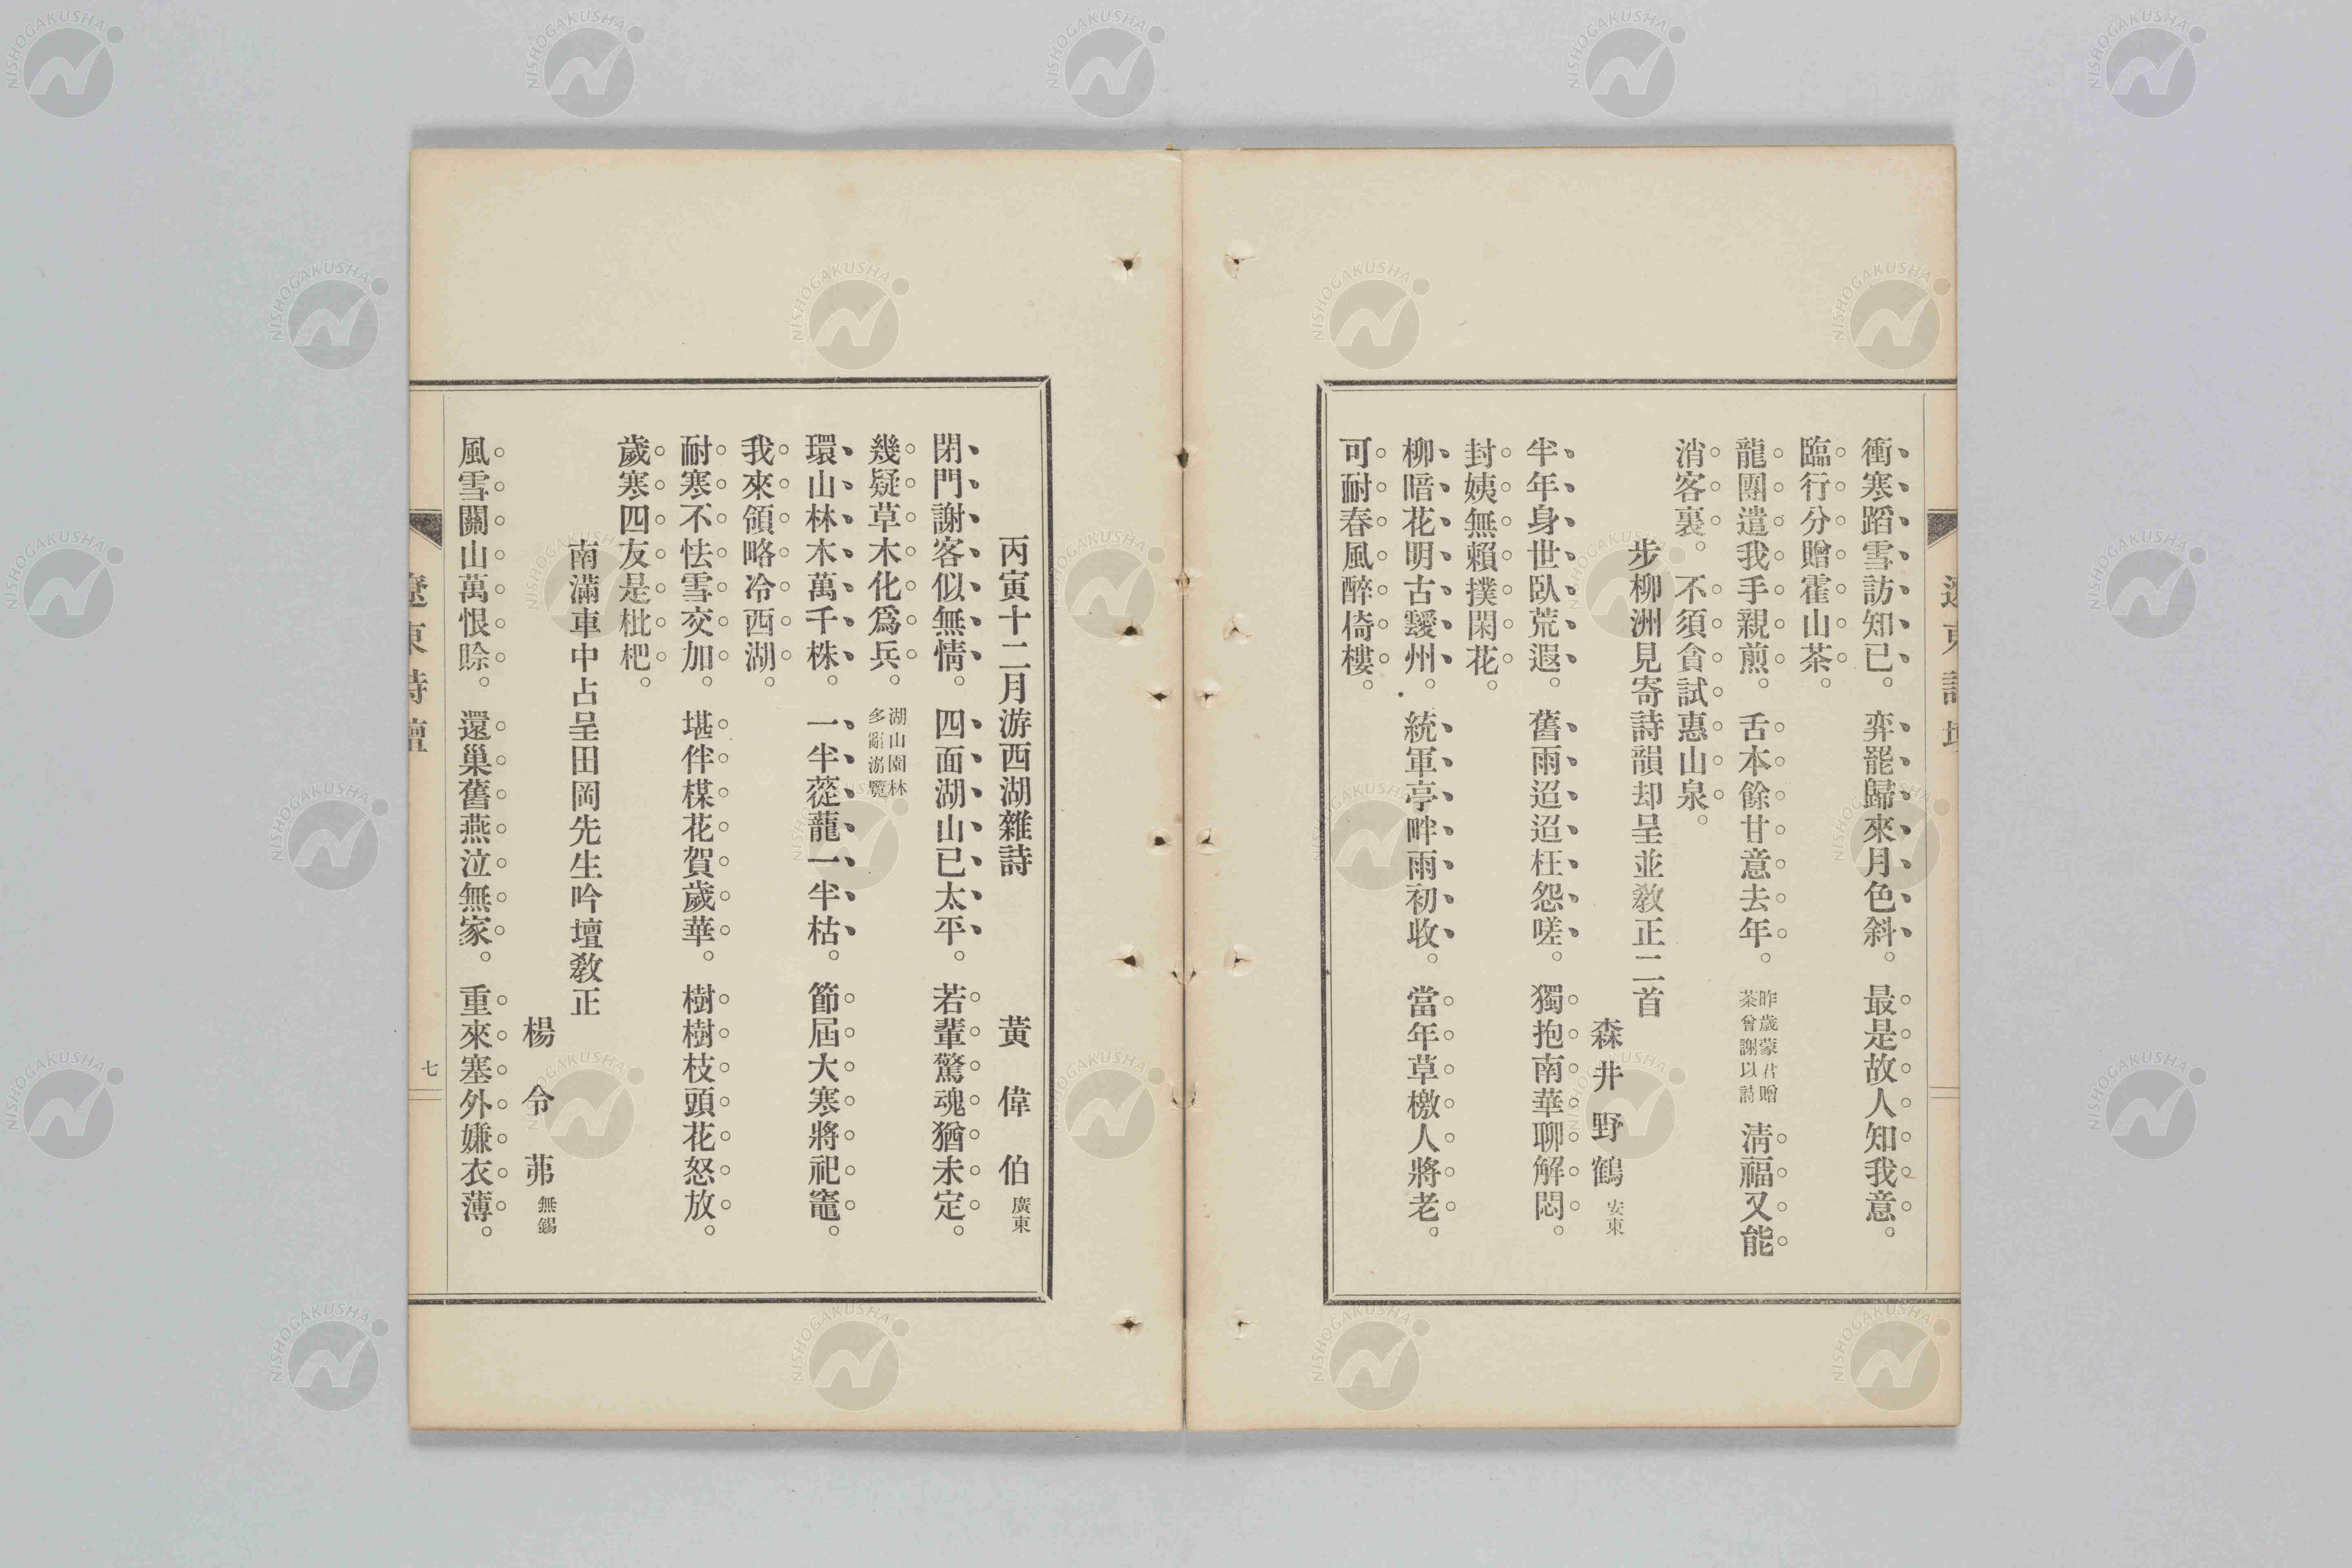 衝寒蹈雪訪知已。弈罷歸來月色斜。最是故人知我意。
臨行分贈霍山茶。
龍團遣我手親煎。舌本餘甘意去年。昨歲蒙君贈茶曾謝以詩淸福又能
消客裏。不須貪試惠山泉。
步柳洲見寄詩韻却呈並敎正二首
森井野鶴 安東
半年身世臥荒遐。舊雨迢迢枉怨嗟。獨抱南華聊解悶。
封姨無賴撲閑花。
柳暗花明古靉州。統軍亭畔雨初收。當年草檄人將老。
可耐春風醉倚樓。
丙寅十二月游西湖雜詩 黃偉伯 廣東
閉門謝客似無情。四面湖山已太平。若輩驚魂猶未定。
幾疑草木化爲兵。湖山園林多辭游覽
環山林木萬千株。一半蓯蘢一半枯。節屆大寒將祀竈。
我來領略冷西湖。
耐寒不怯雪交加。堪伴楳花賀歲華。樹樹枝頭花怒放。
歲寒四友是枇杷。
南滿車中占呈田岡先生吟壇敎正
楊令茀 無錫
風雪關山萬恨賒。還巢舊燕泣無家。重來塞外嫌衣薄。
遼東詩壇
七
NISHOGAKUSHA